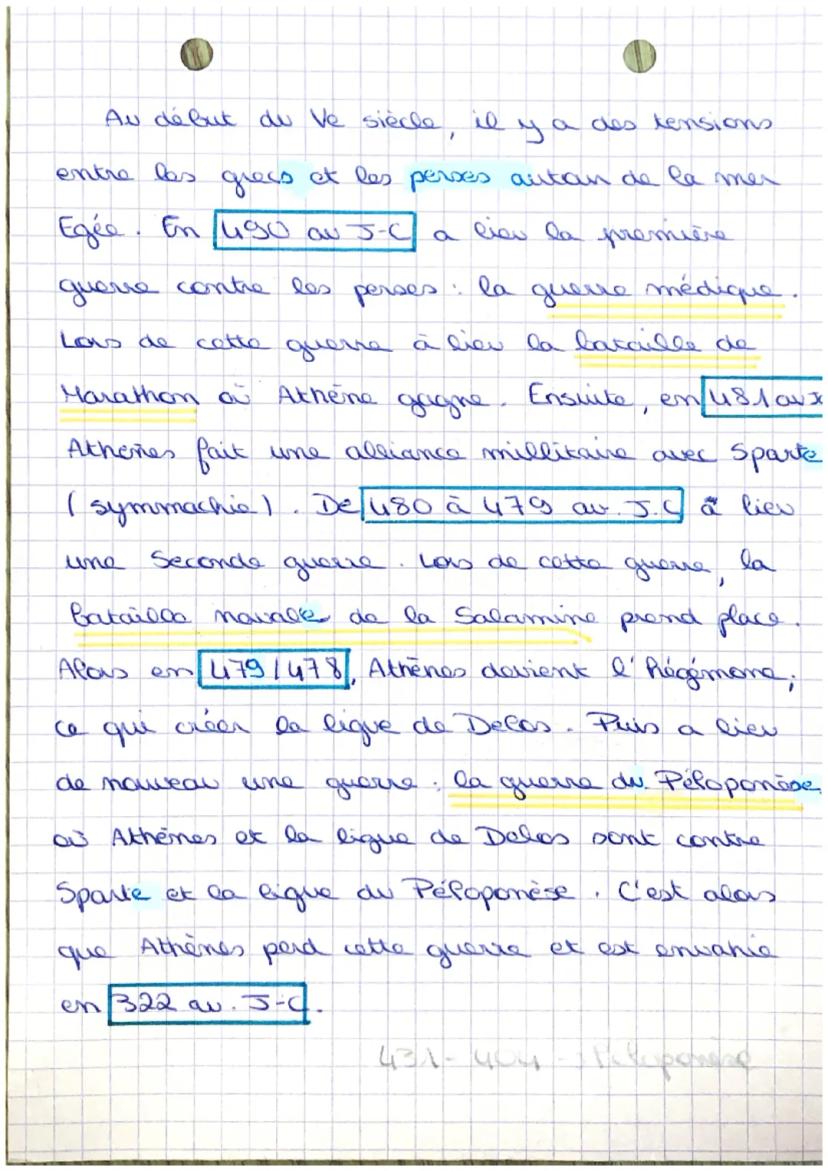 Au début du Ve siècle, il y a des tensions
entre les grecs et les perses autour de la mer
Egée. En 490 av J-C a lieu la première
guerre contre les perses : la guerre médique.
Lors de cette guerre à lieu la bataille de
Marathon où Athène gagne. Ensuite, en 481 av
Athènes fait une alliance millitaire avec Sparte
(symmachie). De 480 à 479 av. J.C à lieu
une Seconde guerre. Lors de cette guerre, la
bataille navale de la Salamine prend place.
Alors en 479/478, Athènes devient l'hégémone,
ce qui créer la ligue de Delos. Puis a lieu
de nouveau une guerre : la guerre du Péloponèse,
où Athènes et la ligue de Delos sont contre
Sparte et la ligue du Péloponèse. C'est alors
que Athènes perd cette guerre et est envahie
en 322 av. J-C.
431-404 - Péloponèse